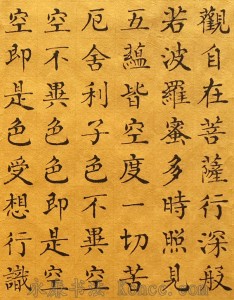 觀自在菩薩行深般
若波羅蜜多時照見
五蘊皆空度一切苦
厄舍利子色不異空
空不異色色即是空
空即是色受想行識